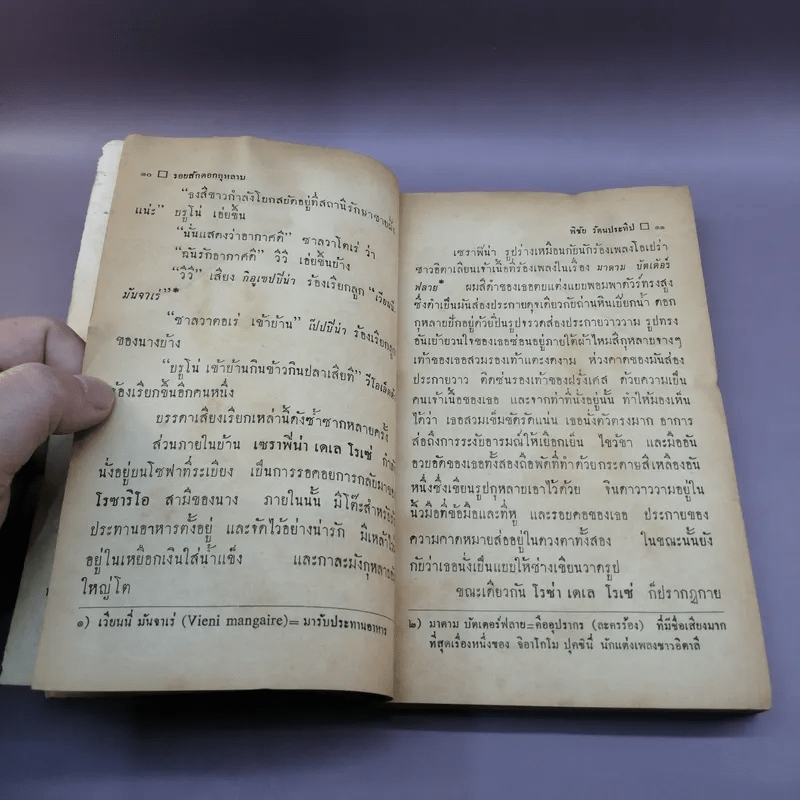 ๑๐ □ รอยสักดอกกุหลาบ
"ธงสีขาวกำลังโบกสบัดอยู่ที่สถานีรักษา
แน่ะ" บรูโน่ เอ่ยขึ้น
"นั่นแสดงว่าอากาศดี" ซาลวาโตเร่ ว่า
"ฉันรักอากาศดี" วีวี เอ่ยขึ้นบ้าง
"วีวี" เสียง ร้องเรียกลูก "เวียนนี่
มันจาเร่"*
"ซาลวาตอเร่ เข้าบ้าน" เป๊ปปีน่า ร้องเรียกลูก
ของนางบ้าง
"บรูโน่ เข้าบ้านกินข้าวกินปลาเสียที" วีโอเล็ตต้า
ร้องเรียกขึ้นอีกคนหนึ่ง
บรรดาเสียงเรียกเหล่านี้ดังซ้ำซากหลายครั้ง
ส่วนภายในบ้าน เซราฟีน่า เดเล โรเซ่
นั่งอยู่บนโซฟาที่ระเบียง เป็นการรอคอยการกลับมาของ
โรซาริโอ สามีของนาง ภายในนั้น มีโต๊ะสำหรับ
ประทานอาหารตั้งอยู่ และจัดไว้อย่างน่ารัก มีเหล้า
อยู่ในเหยือกเงินใส่น้ำแข็ง และกาละมังกุหลาบ
ใหญ่โต
๑) เวียนนี่ มันจาเร่ (Vieni mangaire)= มารับประทานอาหาร
พิชัย รัตนประทีป □ ๑๑
เซราฟีน่า รูปร่างเหมือนกับนักร้องเพลงโอเปร่า
ชาวอิตาเลียนเจ้าเนื้อที่ร้องเพลงในเรื่อง มาดาม บัตเต้อร์
ฟลาย* ผมสีดำของเธอตบแต่งแบบพอมพาดัวร์ทรงสูง
ซึ่งดำเป็นมันส่องประกายดุจเดียวกับถ่านหินเปียกน้ำ ดอก
กุหลาบปักอยู่ด้วยปิ่นรูปจรวดส่องประกายวาววาม รูปทรง
อันเย้ายวนใจของเธอซ่อนอยู่ภายใต้ผ้าไหมสีกุหลาบจางๆ
เท้าของเธอสวมรองเท้าแตะงดงาม ห่วงคาดของมันส่อง
ประกายวาว ติดซ่นรองเท้าของฝรั่งเศส ด้วยความเป็น
คนเจ้าเนื้อของเธอ และจากท่าที่นั่งอยู่นั้น ทำให้มองเห็น
ได้ว่า เธอสวมเข็มขัดรัดแน่น เธอนั่งตัวตรงมาก อาการ
ส่อถึงการระงับอารมณ์ให้เยือกเย็น ไขว้ขา และมืออัน
อวบอัดของเธอทั้งสองถือพัดที่ทำด้วยกระดาษสีเหลืองอัน
หนึ่งซึ่งเขียนรูปกุหลาบเอาไว้ด้วย จินดาวาววามอยู่ใน
นิ้วมือที่ข้อมือและที่หู และรอบคอของเธอ ประกายของ
ความคาดหมายส่ออยู่ในดวงตาทั้งสอง ในขณะนั้นยัง
กับว่าเธอนั่งเป็นแบบให้ช่างเขียนวาดรูป
ขณะเดียวกัน โรซ่า เดเล โรเซ่ ก็ปรากฏกาย
๒) มาดาม บัตเตอร์ฟลาย=คืออุปรากร (ละครร้อง) ที่มีชื่อเสียงมาก
ที่สุดเรื่องหนึ่งของ จิอาโกโม ปุคชินี่ นักแต่งเพลงชาวอิตาลี